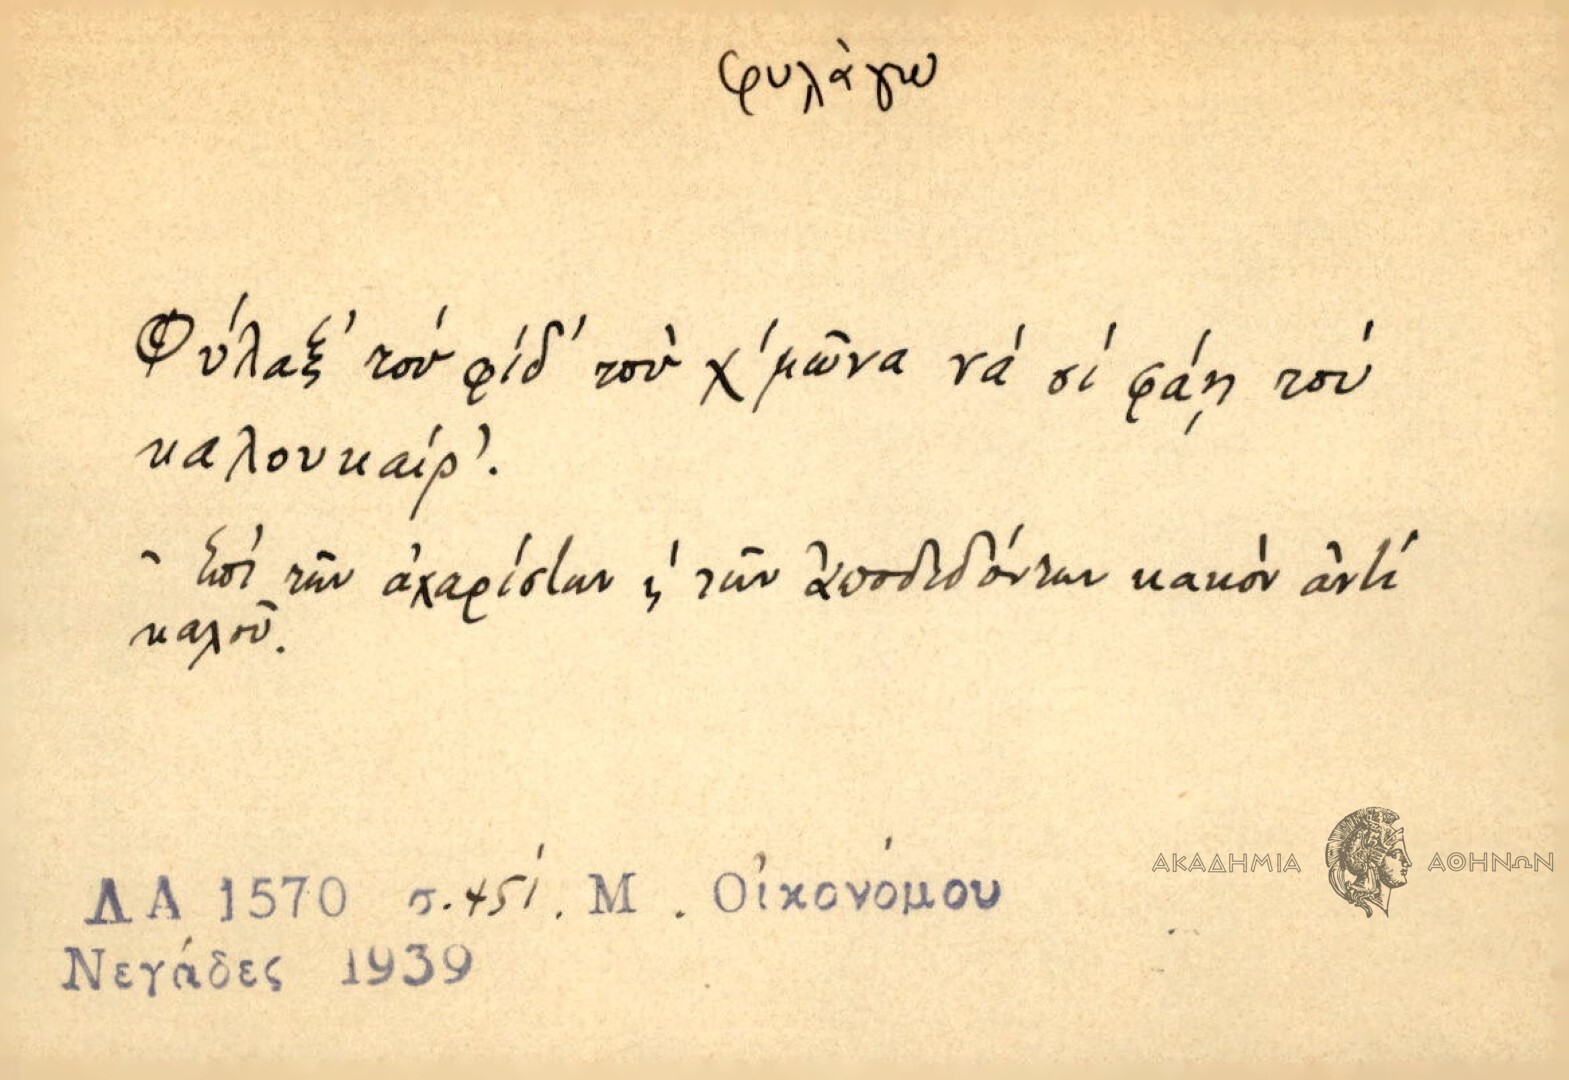 φυλάγω
Φύλαξ' τού φίδ' τού χ'μῶνα νά σί φάῃ τού
καλουκαίρ'.
~ Ἐπί τῶν ἀχαρίστων ἤ τῶν ἀποδιδόντων κακόν ἀντί
καλοῦ.
ΛΑ 1570 σ. 451. Μ. Οἰκονόμου
Νεγάδες 1939
ΑΚΑΔΗΜΙΑ ΑΘΗΝΩΝ